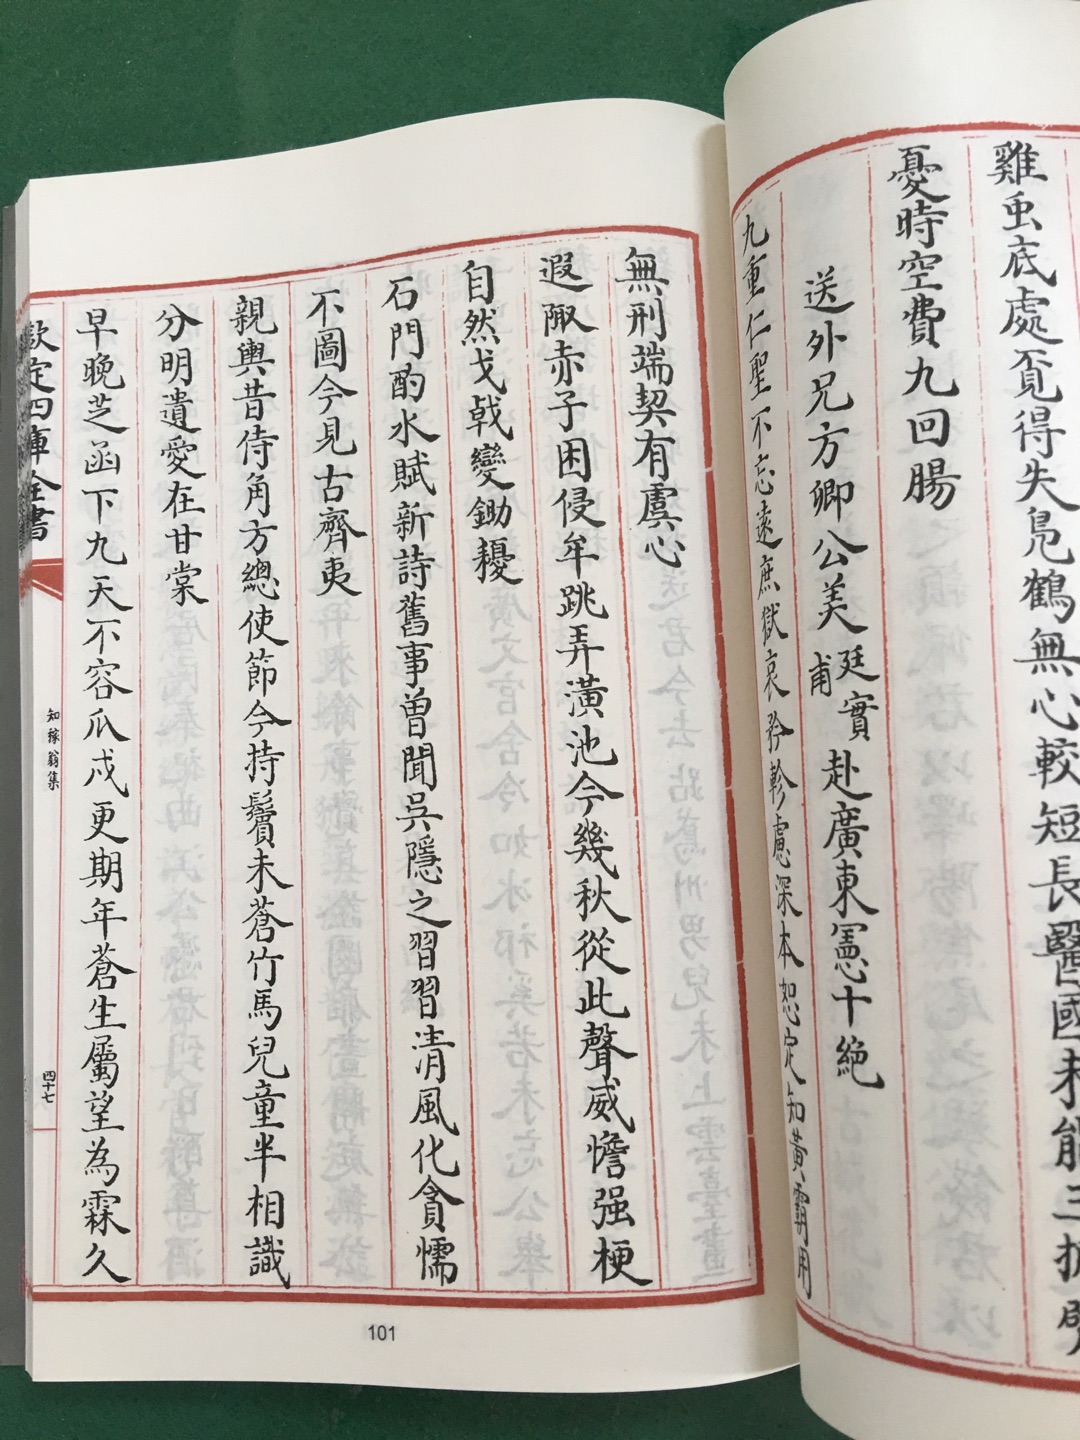 雞虫底處覔得失鳬鶴無心較短長醫國未能三折
憂時空費九回腸
送外兄方卿公美廷實甫赴廣東憲十絶
九重仁聖不忘遠庶獄哀矜軫慮深本恕定知黃霸用
無刑端契有虞心
遐陬赤子困侵牟跳弄潢池今幾秋從此聲威憺强梗
自然戈㦸變鋤耰
石門酌水賦新詩舊事曾聞吳隱之習習清風化貪懦
不圖今見古齊夷
親輿昔侍角方總使節今持鬢未蒼竹馬兒童半相識
分明遺愛在甘棠
早晚芝函下九天不容瓜戍更期年蒼生屬望為霖久
欽定四庫全書
知稼翁集
四十七
101